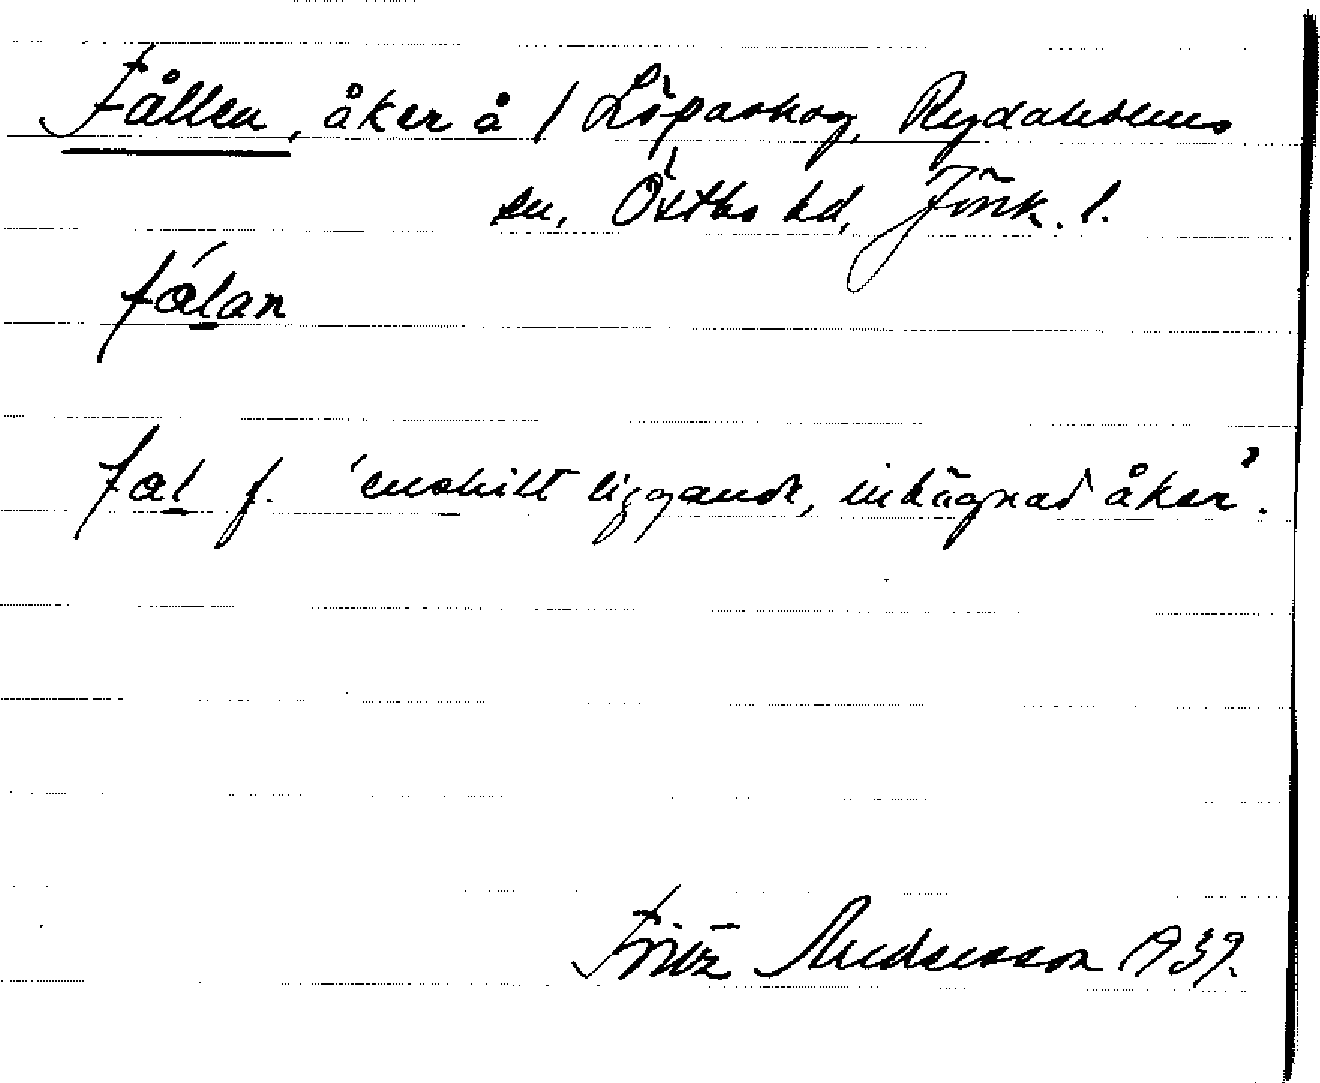 Fållen, åker å 1 Löpaskog, Rydaholms
sn, Östbo hd, Jönk. l.
fálan
fal f. 'enskilt liggande, inhägnad åker'.
Fritz Andersson 1939.